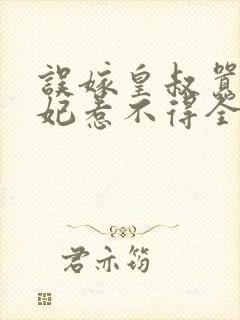 誤嫁皇叔
妃惹不得全
君亦筠